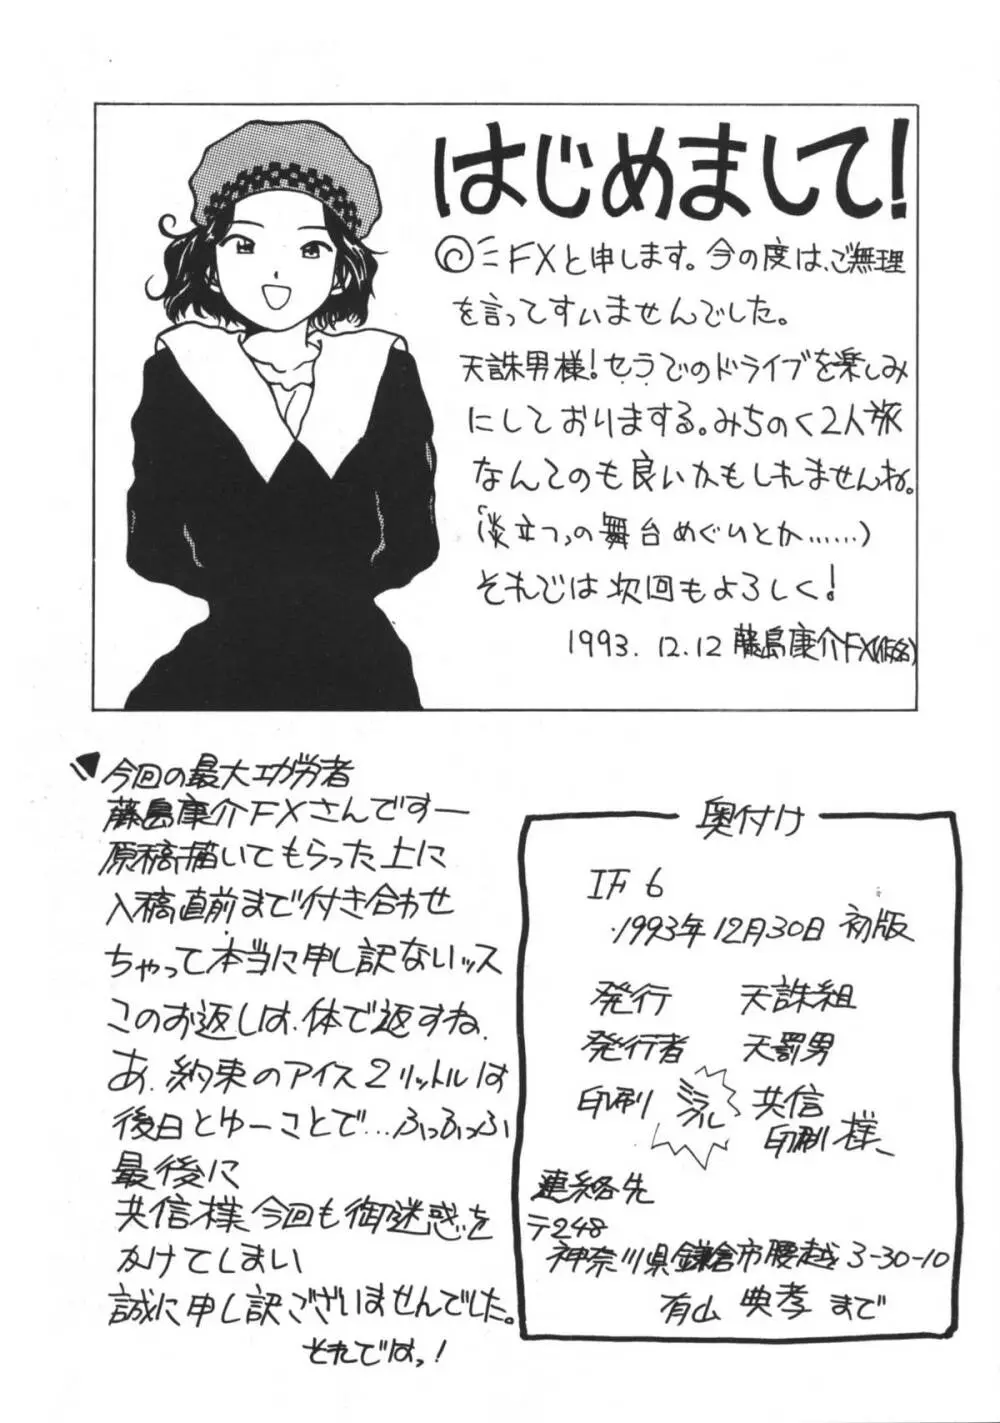 はじめまして!
FXと申します。今の度は、ご無理
を言ってすいませんでした。
天誅男様!セラでのドライブを楽しみ
にしておりまする。みちのく2人旅
なんてのも良いかもしれませんね。
立つ」の舞台めぐりとか……)
それでは次回もよろしく!
1993.12.12 藤島康介FX(仮名)
今回の最大功労者
藤島康介FXさんですー
原稿描いてもらった上に
入稿直前まで付き合わせ
ちゃって本当に申し訳ないッス
このお返しは、体で返すね、
あ、約束のアイス2リットルは
後日とゆーことで…ふっふっふ
最後に
共信様、今回も御迷惑を
かけてしまい
誠に申し訳ございませんでした。
それではっ!
奥付け
IF 6
1993年12月30日 初版
発行 天誅組
発行者 天罰男
印刷 ミラクル 共信
印刷 様、
連絡先
〒248
神奈川県鎌倉市腰越3-30-10
有山 典孝 まで